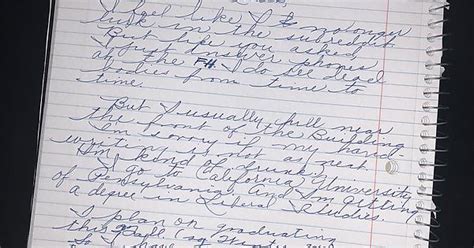 I feel like I no longer
lurk on the subreddit
But like you asked,
I just answer phones
at the FH. I do see dead
bodies from time to
time.
But I usually pull near
the front of the Building
I'm sorry if my hand-
writing is not as neat
I'm kind of drunk
I go to California University
of Pennsylvania. And I'm getting
a degree in Liberal Studies.
I plan on graduating
this Fall
So I